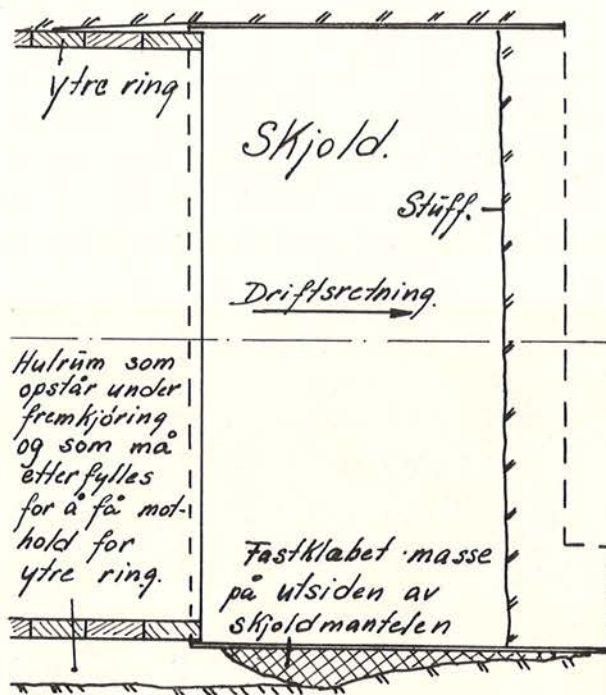 ytre ring
Skjold.
Stüff.
Driftsretning.
Hulrüm som
opstår under
fremkjöring
og som må
etterfylles
for å få mot-
hold for
ytre ring.
Fastklæbet masse
på utsiden av
skjoldmantelen